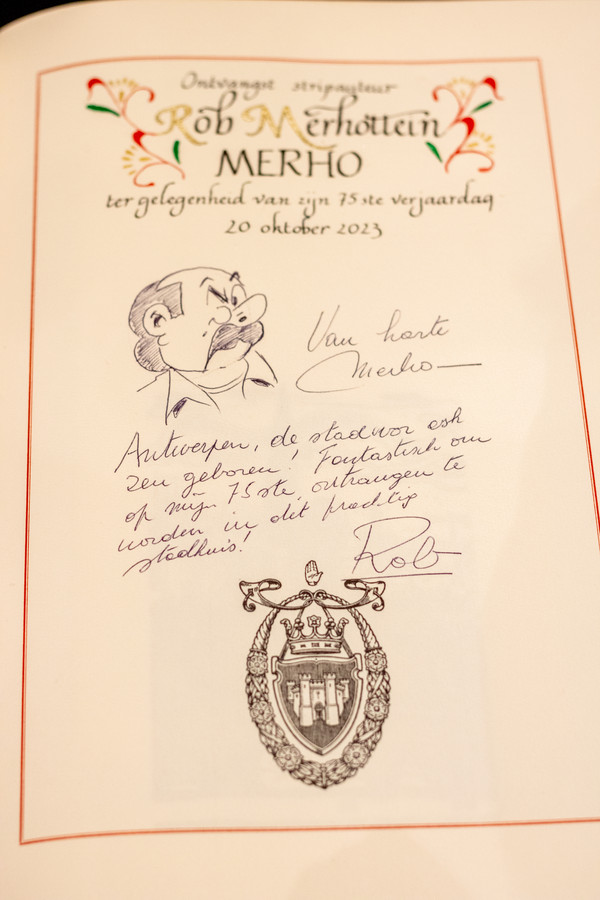 Ontvangst stripauteur
Rob Merhottein
MERHO
ter gelegenheid van zijn 75ste verjaardag
20 oktober 2023
Van harte
Merho
Antwerpen, de stad wor ekh
zen geboren! Fantastisch om
op mijn 75ste, ontvangen te
worden in dit prachtig
stadhuis!
Rob